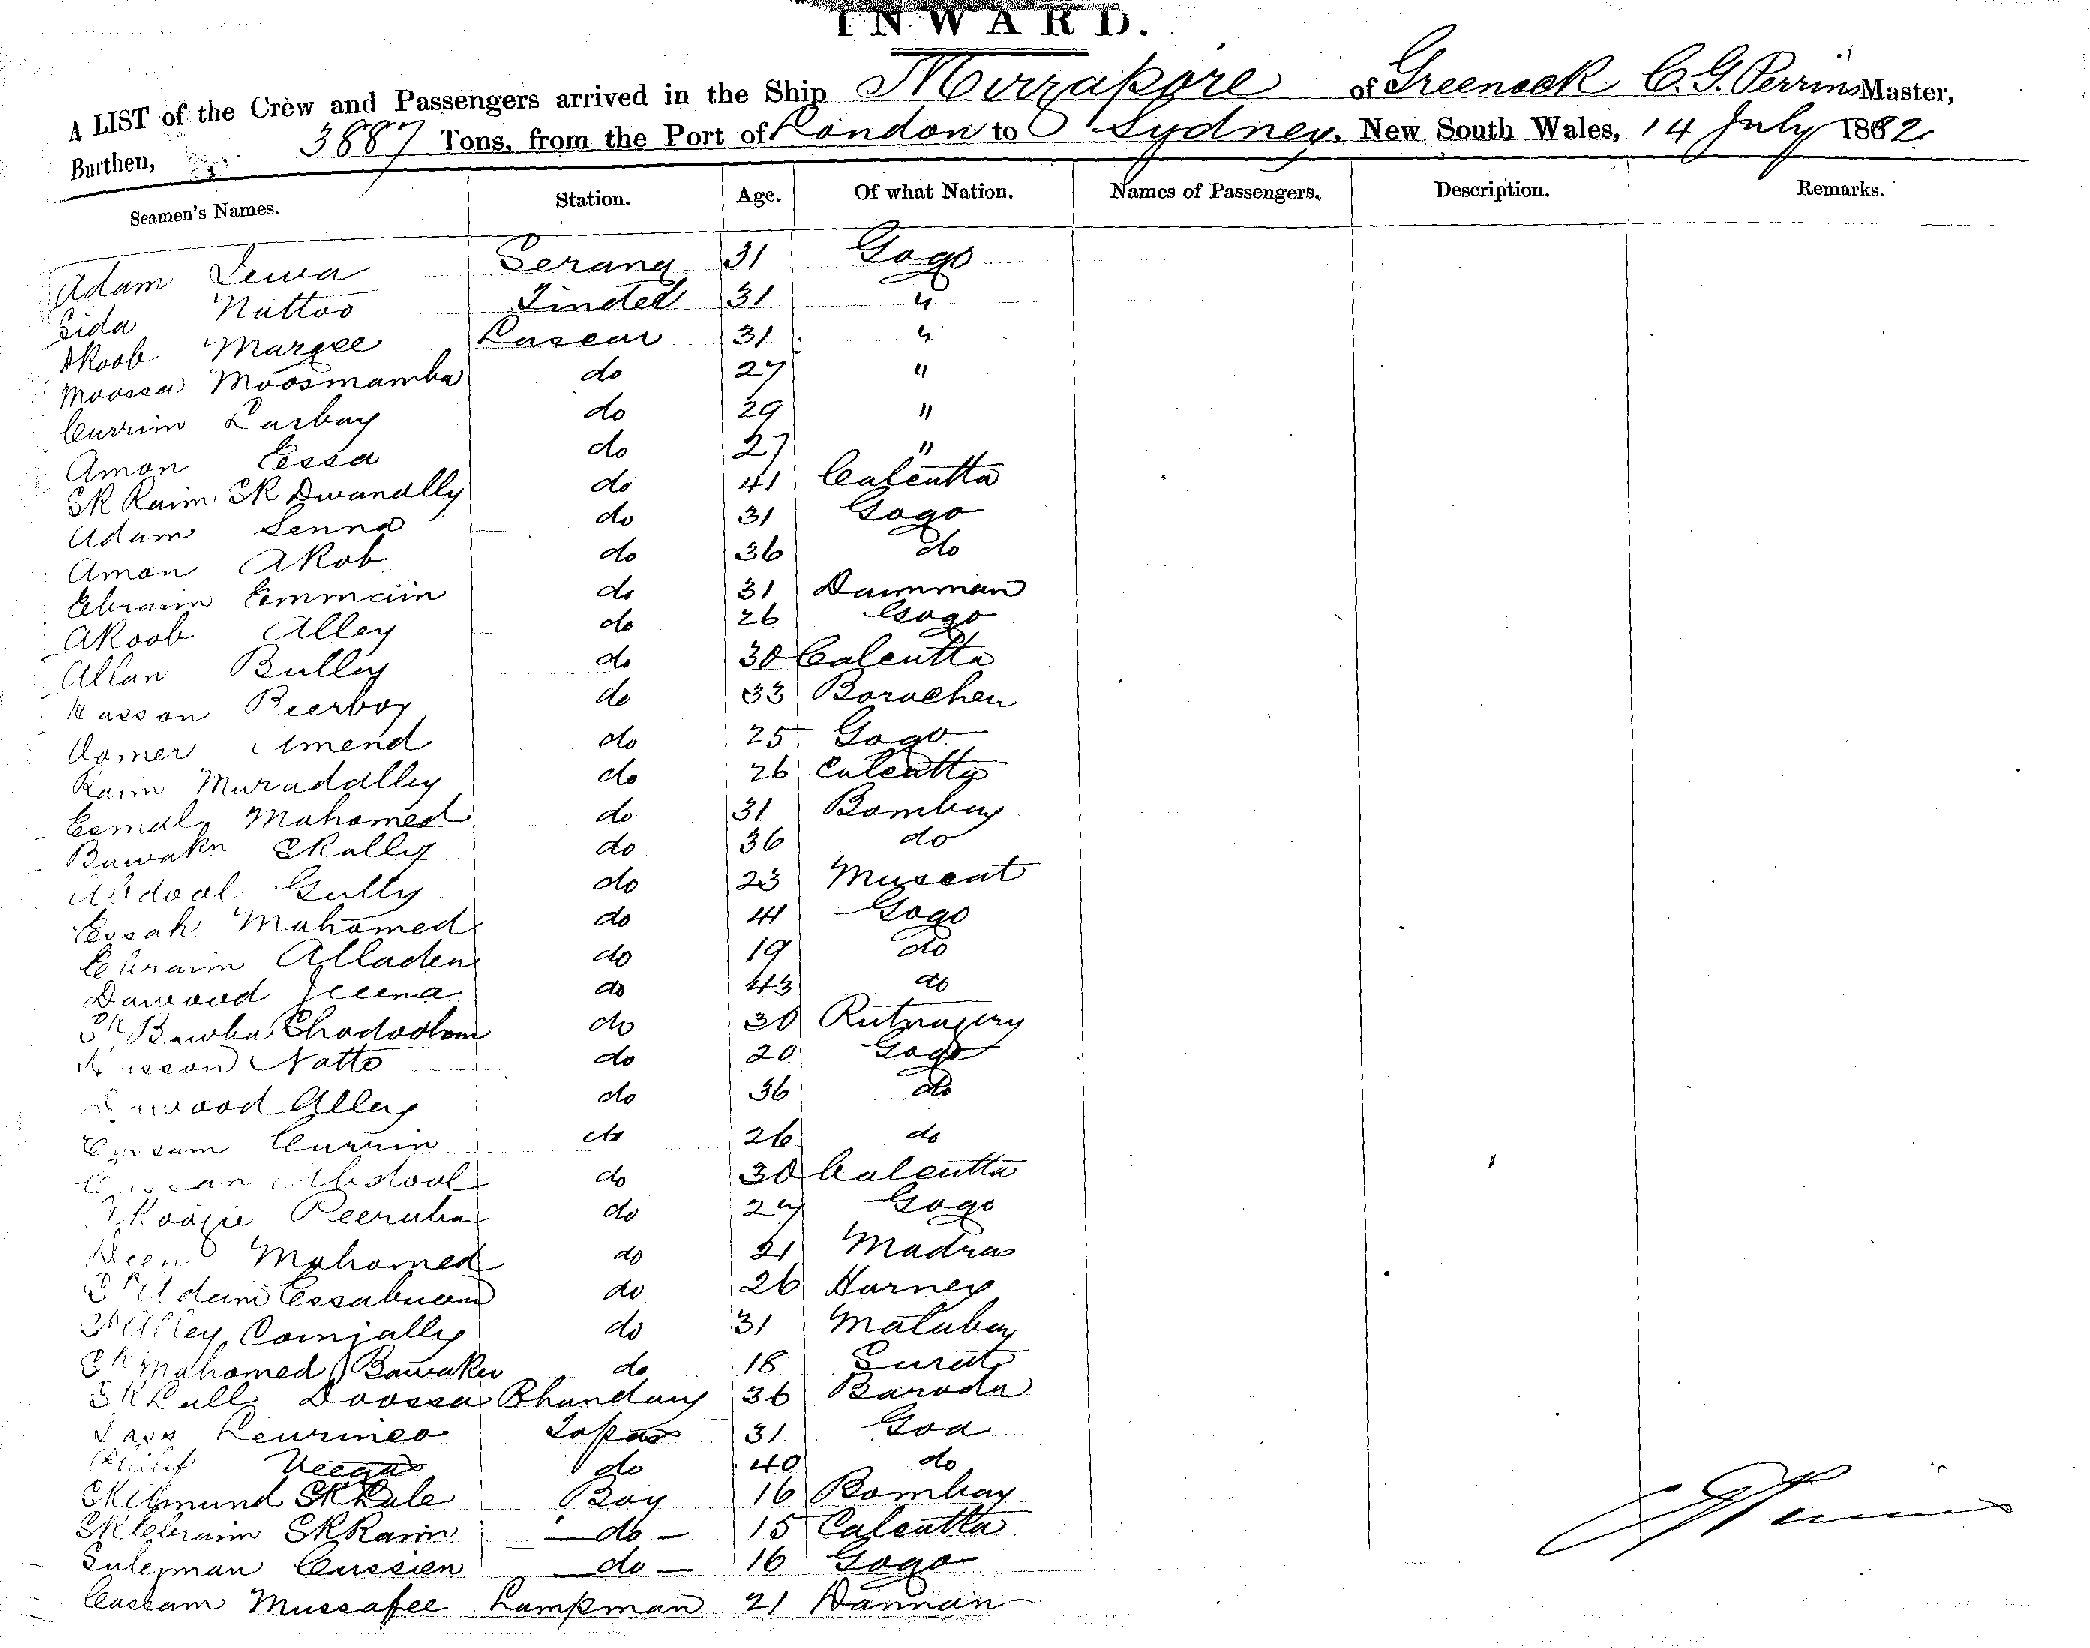 INWARD.
A LIST of the Crew and Passengers arrived in the Ship Mirzapore of Greenock C. G. Perrins Master,
Burthen, 3887 Tons, from the Port of London to Sydney. New South Wales, 14 July 1882
Seamen's Names. Station. Age. Of what Nation. Names of Passengers. Description. Remarks.
Adam Jewa Serang 31 Gogo
Sida Nattoo Tindel 31 "
Akoob Margee Lascar 31 "
Moossa Moosmamba do 27 "
Currim Larbay do 29 "
Amon Eessa do 27 "
SK Raim SK Dwanally do 41 Calcutta
Adam Senna do 31 Gogo
Amon Akob do 36 do
Ebraim Eommaiin do 31 Damman
Akoob Alley do 26 Gogo
Allan Bulley do 30 Calcutta
Hasson Beerboy do 33 Borochen
Oomer Amend do 25 Gogo
Raim Muradalley do 26 Calcutta
Esmal Mahomed do 31 Bombay
Bawakn SKally do 36 do
Abdool Gully do 23 Muscat
Essah Mahomed do 41 Gogo
Ebraim Alladen do 19 do
Dawood Jeena do 43 do
SK Bawba Chodoobom do 30 Rutnagery
Hisson Natto do 20 Gogo
Dawood Alley do 36 do
Currim do 26 do
Abdool do 30 Calcutta
Peeruba do 27 Gogo
Deen Mahomed do 21 Madras
SK Adam Essabuom do 26 Harney
SK Alley Comjally do 31 Malabay
SK Mahomed Bawaker do 18 Surat
SK Lall Doossa Bhandary 36 Baroda
Leurineo Topas 31 Goa
Philip Veegas do 40 do
SK Amund SK Lale Boy 16 Bombay
SK Ebraim SK Raim — do — 15 Calcutta
Suleman Cussien — do — 16 Gogo
Cassam Mussafee Lampman 21 Dannan
C G Perrins